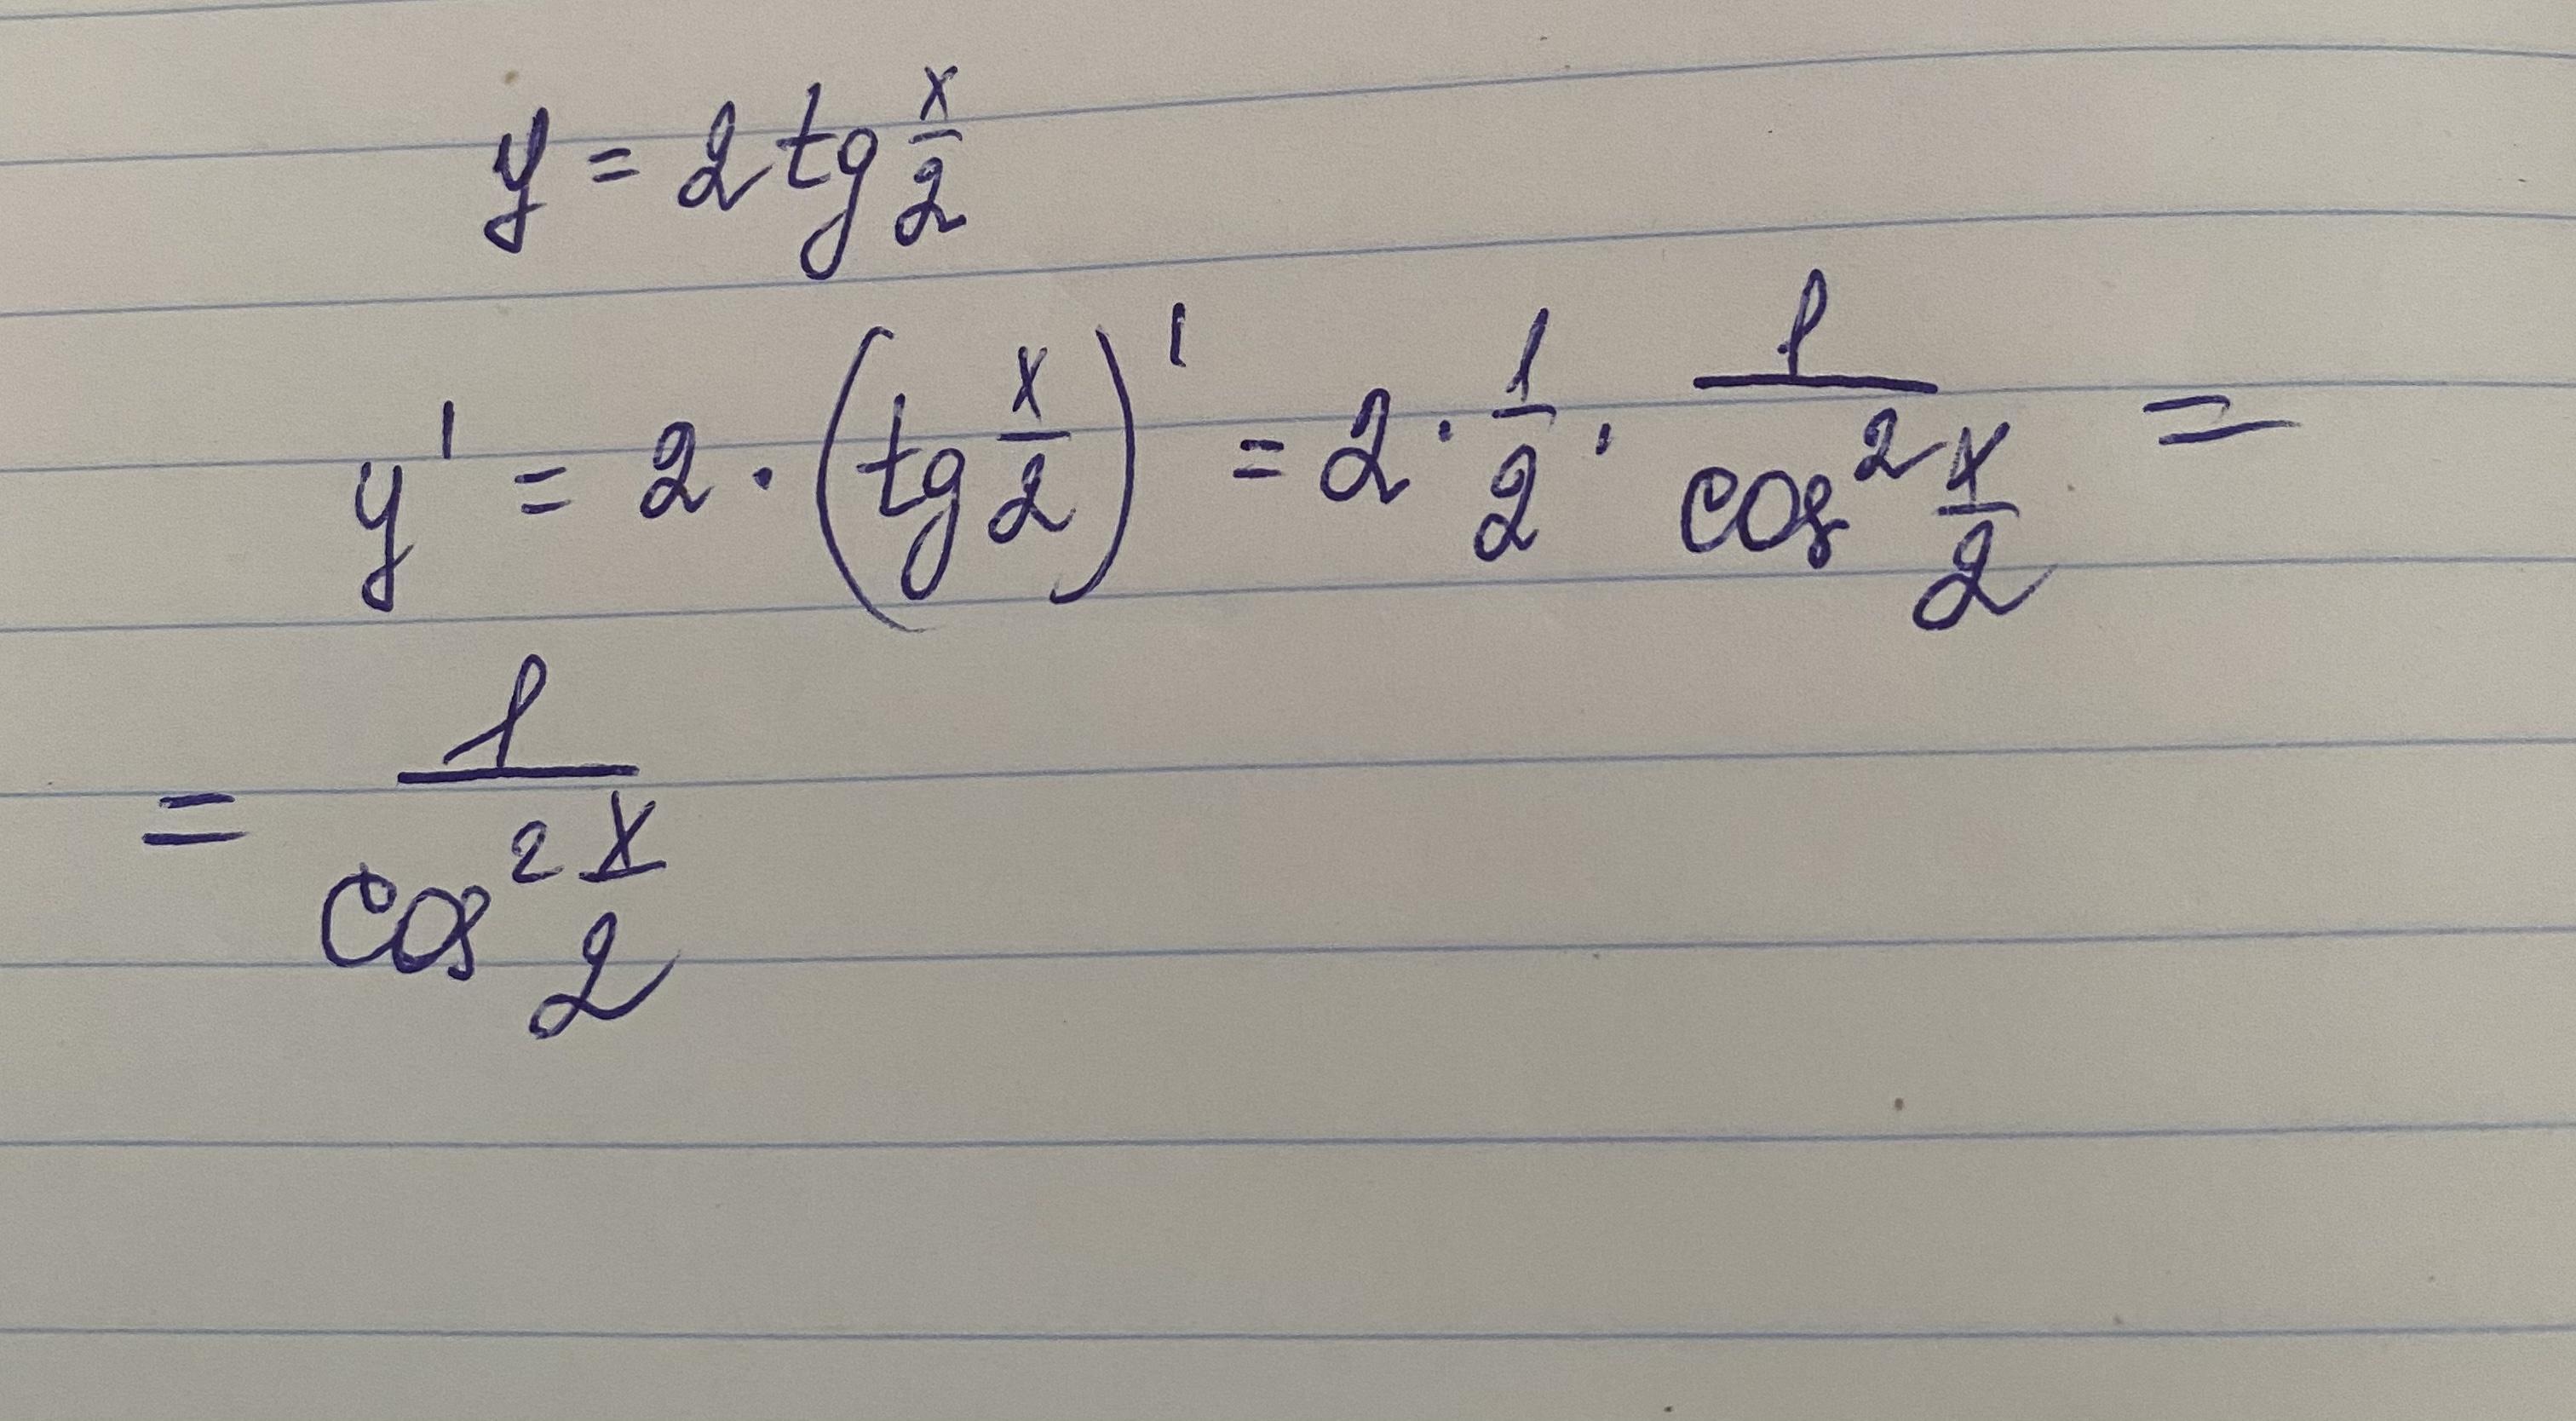 y = 2 tg x/2
y' = 2 · (tg x/2)' = 2 · 1/2 · 1/cos² x/2 =
= 1/cos² x/2